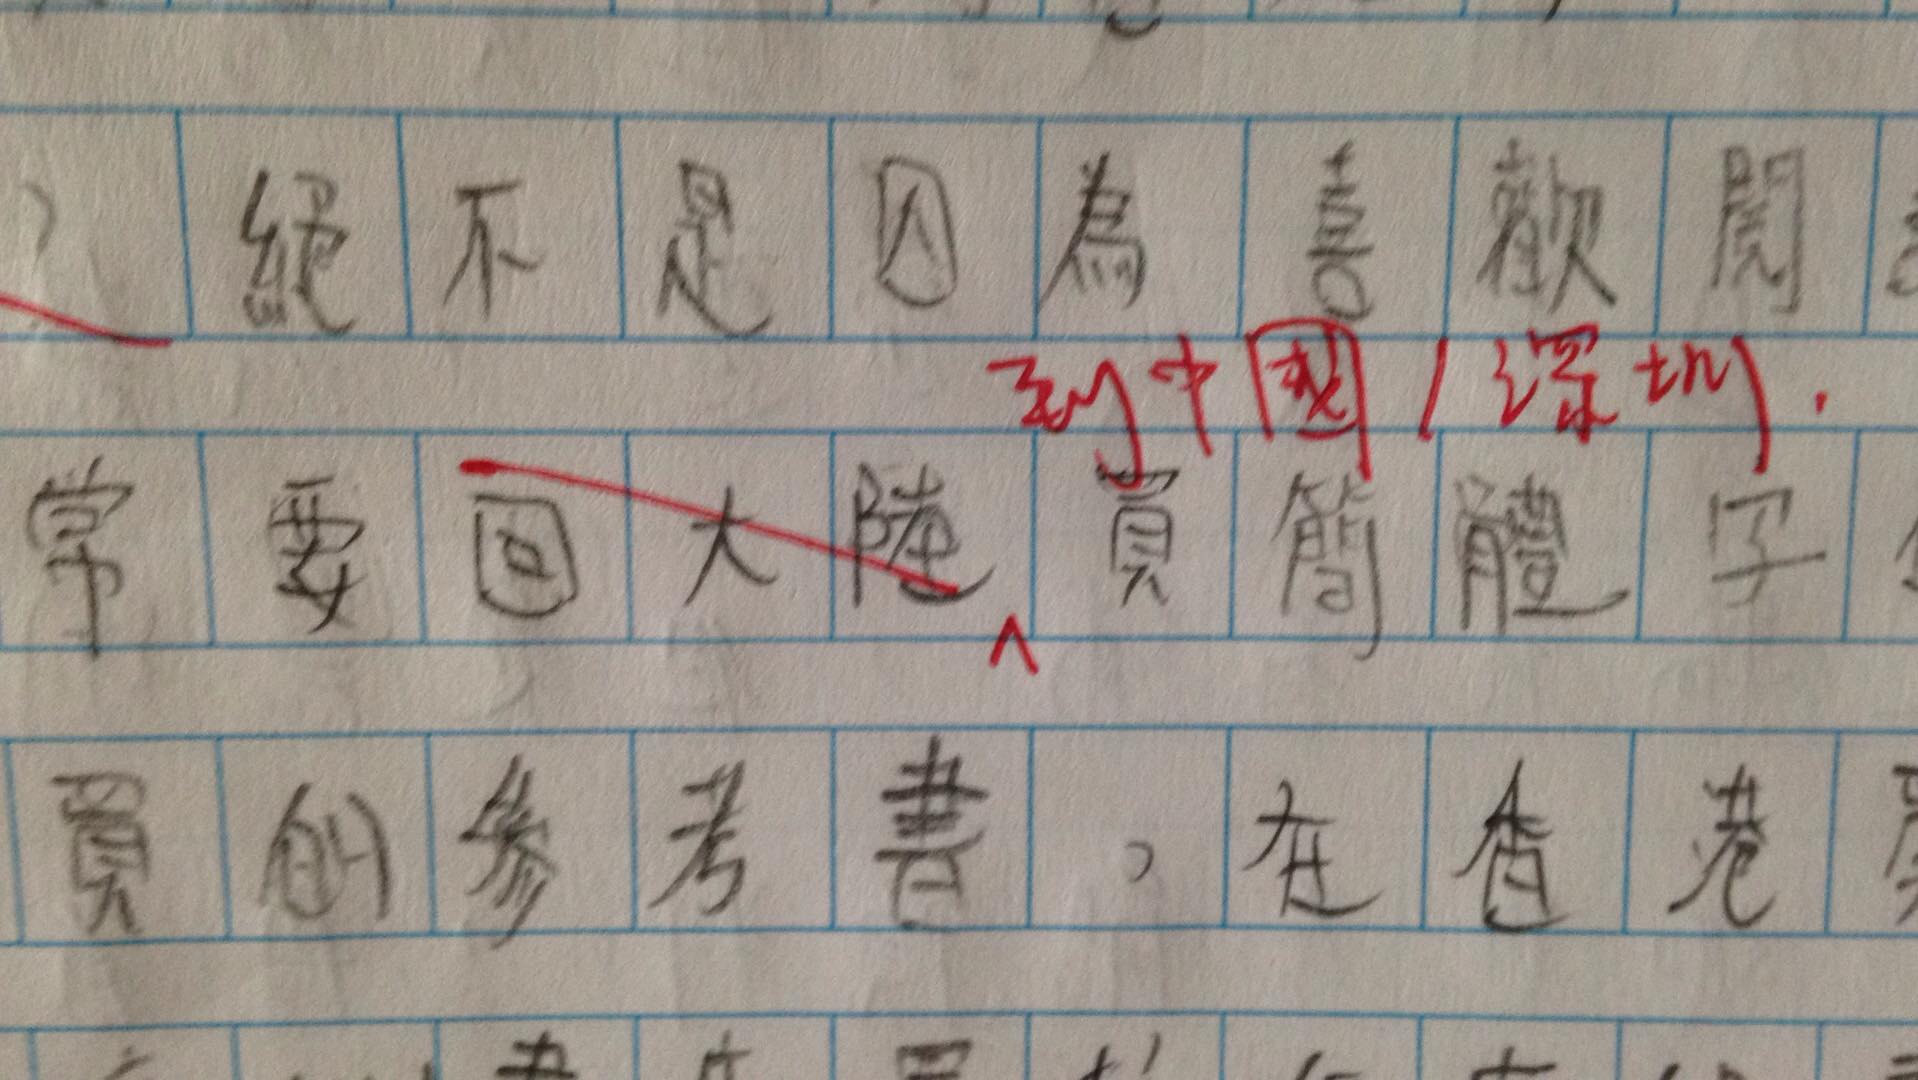 ，絕不是因為喜歡閱
到中國/深圳.
常要回大陸買簡體字
買的參考書，在香港